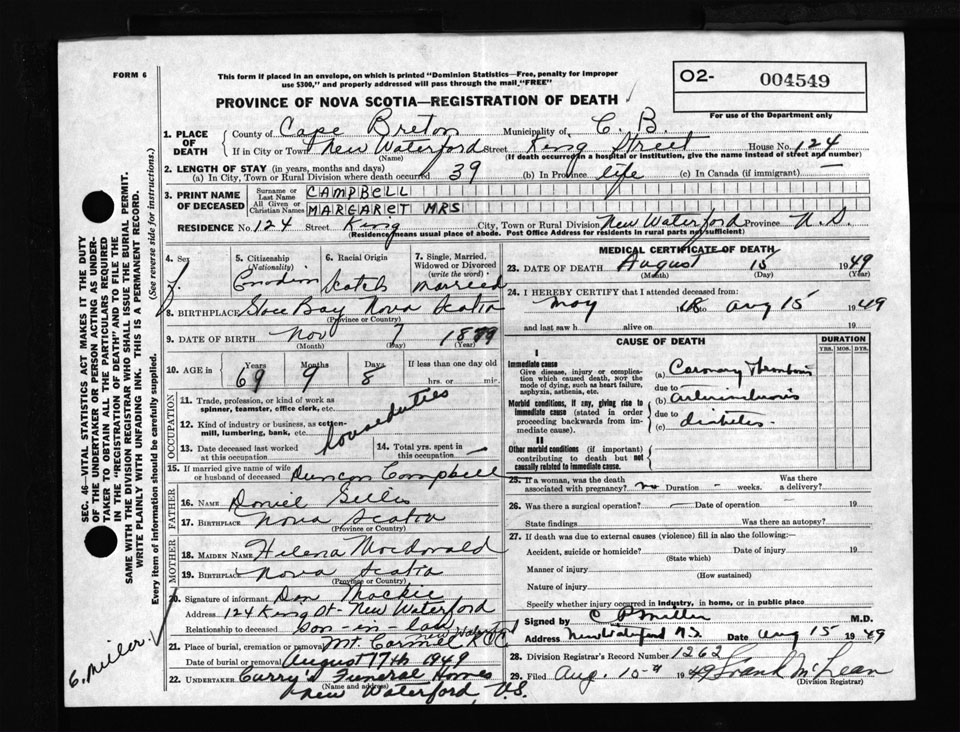 FORM 6
This form if placed in an envelope, on which is printed "Dominion Statistics—Free, penalty for improper
use $300," and properly addressed will pass through the mail "FREE"
O2- 004549
For use of the Department only
PROVINCE OF NOVA SCOTIA—REGISTRATION OF DEATH
1. PLACE OF DEATH
County of Cape Breton Municipality of C. B.
If in City or Town New Waterford Street King Street House No. 124
(Name) (If death occurred in a hospital or institution, give the name instead of street and number)
2. LENGTH OF STAY (in years, months and days)
(a) In City, Town or Rural Division where death occurred 39 (b) In Province life (c) In Canada (if immigrant) —
3. PRINT NAME OF DECEASED
Surname or Last Name CAMPBELL
All Given or Christian Names MARGARET MRS
RESIDENCE No. 124 Street King City, Town or Rural Division New Waterford Province N. S.
(Residence means usual place of abode. Post Office Address for residents in rural parts not sufficient)
4. Sex f.
5. Citizenship (Nationality) Canadian
6. Racial Origin Scotch
7. Single, Married, Widowed or Divorced (write the word) married
8. BIRTHPLACE Glace Bay Nova Scotia
(Province or Country)
9. DATE OF BIRTH Nov 7 1879
(Month) (Day) (Year)
10. AGE in Years 69 Months 9 Days 8 If less than one day old
hrs. or min.
OCCUPATION
11. Trade, profession, or kind of work as spinner, teamster, office clerk, etc.
houseduties
12. Kind of industry or business, as cotton-mill, lumbering, bank, etc.
13. Date deceased last worked at this occupation —
14. Total yrs. spent in this occupation —
15. If married give name of wife or husband of deceased Duncan Campbell
FATHER
16. Name Daniel Gillis
17. Birthplace Nova Scotia
(Province or Country)
MOTHER
18. Maiden Name Helena Macdonald
19. Birthplace Nova Scotia
(Province or Country)
20. Signature of informant Dan Mackie
Address 124 King St - New Waterford
Relationship to deceased Son-in-law
21. Place of burial, cremation or removal Mt. Carmel New Waterford
Date of burial or removal August 17th 1949
22. UNDERTAKER Curry's Funeral Homes
(Name and address)
New Waterford, N.S.
MEDICAL CERTIFICATE OF DEATH
23. DATE OF DEATH August 15 1949
(Month) (Day) (Year)
24. I HEREBY CERTIFY that I attended deceased from:
May 18 Aug 15 1949
and last saw h alive on 19
CAUSE OF DEATH
DURATION
YRS. MOS. DYS.
I
Immediate cause
Give disease, injury or complication which caused death, NOT the mode of dying, such as heart failure, asphyxia, asthenia, etc.
(a) Coronary Thrombosis
due to
Morbid conditions, if any, giving rise to immediate cause (stated in order proceeding backwards from immediate cause).
(b) arteriosclerosis
due to
(c) diabetes
II
Other morbid conditions (if important) contributing to death but not causally related to immediate cause.
25. If a woman, was the death associated with pregnancy? no Duration — weeks. Was there a delivery?
26. Was there a surgical operation? — Date of operation — 19
State findings Was there an autopsy?
27. If death was due to external causes (violence) fill in also the following:
Accident, suicide or homicide? Date of injury 19
(State which)
Manner of injury
(How sustained)
Nature of injury
Specify whether injury occurred in industry, in home, or in public place
Signed by C P Miller M.D.
Address New Waterford N.S. Date Aug 15 1949
28. Division Registrar's Record Number 1262
29. Filed Aug. 1949 Frank McLean
(Division Registrar)
SEC. 46—VITAL STATISTICS ACT MAKES IT THE DUTY
OF THE UNDERTAKER OR PERSON ACTING AS UNDERTAKER
TO OBTAIN ALL THE PARTICULARS REQUIRED
IN THE "REGISTRATION OF DEATH" AND TO FILE THE
SAME WITH THE DIVISION REGISTRAR WHO SHALL ISSUE THE BURIAL PERMIT.
WRITE PLAINLY WITH UNFADING INK. THIS IS A PERMANENT RECORD.
Every item of information should be carefully supplied. (See reverse side for instructions.)
G. Miller.